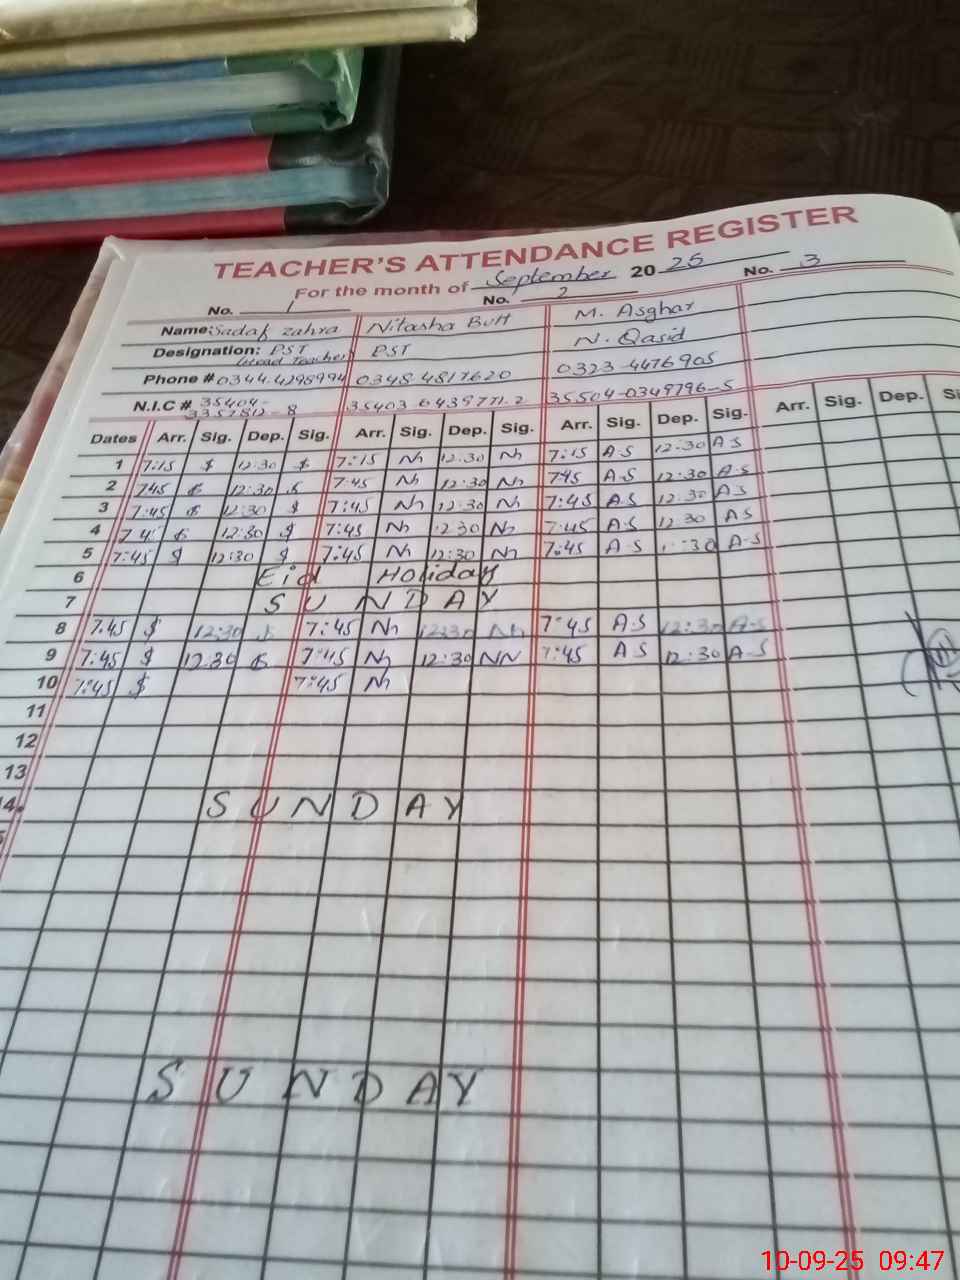 TEACHER'S ATTENDANCE REGISTER
For the month of September 20 25
No. 1 No. 2 No. 3
Name: Sadaf Zahra Nitasha Butt M. Asghar
Designation: PST Head Teacher PST N. Qasid
Phone # 0344.4298994 0348.4817620 0323-4476905
N.I.C # 35404-3357812-8 35403 6439771.2 35504-0349796-5
Dates Arr. Sig. Dep. Sig. Arr. Sig. Dep. Sig. Arr. Sig. Dep. Sig. Arr. Sig. Dep.
1 7:15 $ 12:30 $ 7:15 Nn 12:30 Nn 7:15 A-S 12:30 A-S
2 745 $ 12:30 $ 7:45 Nn 12:30 Nn 745 A-S 12:30 A-S
3 7:45 $ 12:30 $ 7:45 Nn 12:30 Nn 7:45 A-S 12:30 A-S
4 $ 12:30 $ 7:45 Nn 12 30 Nn 7:45 A-S 12:30 A-S
5 7:45 $ 12:30 $ 7:45 Nn 12:30 Nn 7:45 A-S A-S
6 Eid Holiday
7 SUNDAY
8 7:45 $ 12:30 $ 7:45 Nn 12:30 Nn 7:45 A-S 12:30 A-S
9 7:45 $ 12:30 $ 7:45 Nn 12:30 NN 7:45 A-S 12:30 A-S
10 7:45 $ 7:45 Nn
11
12
13
14 SUNDAY
SUNDAY
10-09-25 09:47